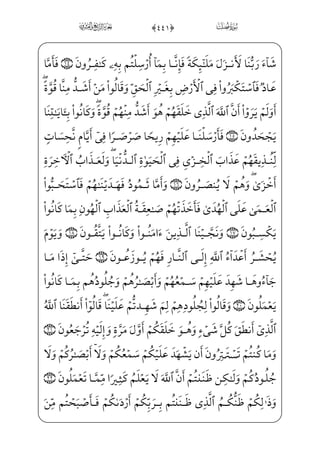 سُورَةُ فُصِّلَتْ ﴿٤٤١﴾
شَآءَ رَبُّنَا لَأَنزَلَ مَلَٰٓئِكَةً فَإِنَّا بِمَآ أُرْسِلْتُم بِهِۦ كَٰفِرُونَ فَأَمَّا
عَادٌ فَٱسْتَكْبَرُوا۟ فِى ٱلْأَرْضِ بِغَيْرِ ٱلْحَقِّ وَقَالُوا۟ مَنْ أَشَدُّ مِنَّا قُوَّةً ۖ
أَوَلَمْ يَرَوْا۟ أَنَّ ٱللَّهَ ٱلَّذِى خَلَقَهُمْ هُوَ أَشَدُّ مِنْهُمْ قُوَّةً ۖ وَكَانُوا۟ بِـَٔايَٰتِنَا
يَجْحَدُونَ فَأَرْسَلْنَا عَلَيْهِمْ رِيحًا صَرْصَرًا فِىٓ أَيَّامٍ نَّحِسَاتٍ
لِّنُذِيقَهُمْ عَذَابَ ٱلْخِزْىِ فِى ٱلْحَيَوٰةِ ٱلدُّنْيَا ۖ وَلَعَذَابُ ٱلْءَاخِرَةِ
أَخْزَىٰ ۖ وَهُمْ لَا يُنصَرُونَ وَأَمَّا ثَمُودُ فَهَدَيْنَٰهُمْ فَٱسْتَحَبُّوا۟
ٱلْعَمَىٰ عَلَى ٱلْهُدَىٰ فَأَخَذَتْهُمْ صَٰعِقَةُ ٱلْعَذَابِ ٱلْهُونِ بِمَا كَانُوا۟
يَكْسِبُونَ وَنَجَّيْنَا ٱلَّذِينَ ءَامَنُوا۟ وَكَانُوا۟ يَتَّقُونَ وَيَوْمَ
يُحْشَرُ أَعْدَآءُ ٱللَّهِ إِلَى ٱلنَّارِ فَهُمْ يُوزَعُونَ حَتَّىٰٓ إِذَا مَا
جَآءُوهَا شَهِدَ عَلَيْهِمْ سَمْعُهُمْ وَأَبْصَٰرُهُمْ وَجُلُودُهُم بِمَا كَانُوا۟
يَعْمَلُونَ وَقَالُوا۟ لِجُلُودِهِمْ لِمَ شَهِدتُّمْ عَلَيْنَا ۖ قَالُوٓا۟ أَنطَقَنَا ٱللَّهُ
ٱلَّذِىٓ أَنطَقَ كُلَّ شَىْءٍ وَهُوَ خَلَقَكُمْ أَوَّلَ مَرَّةٍ وَإِلَيْهِ تُرْجَعُونَ
وَمَا كُنتُمْ تَسْتَتِرُونَ أَن يَشْهَدَ عَلَيْكُمْ سَمْعُكُمْ وَلَآ أَبْصَٰرُكُمْ وَلَا
جُلُودُكُمْ وَلَٰكِن ظَنَنتُمْ أَنَّ ٱللَّهَ لَا يَعْلَمُ كَثِيرًا مِّمَّا تَعْمَلُونَ
وَذَٰلِكُمْ ظَنُّكُمُ ٱلَّذِى ظَنَنتُم بِرَبِّكُمْ أَرْدَىٰكُمْ فَأَصْبَحْتُم مِّنَ